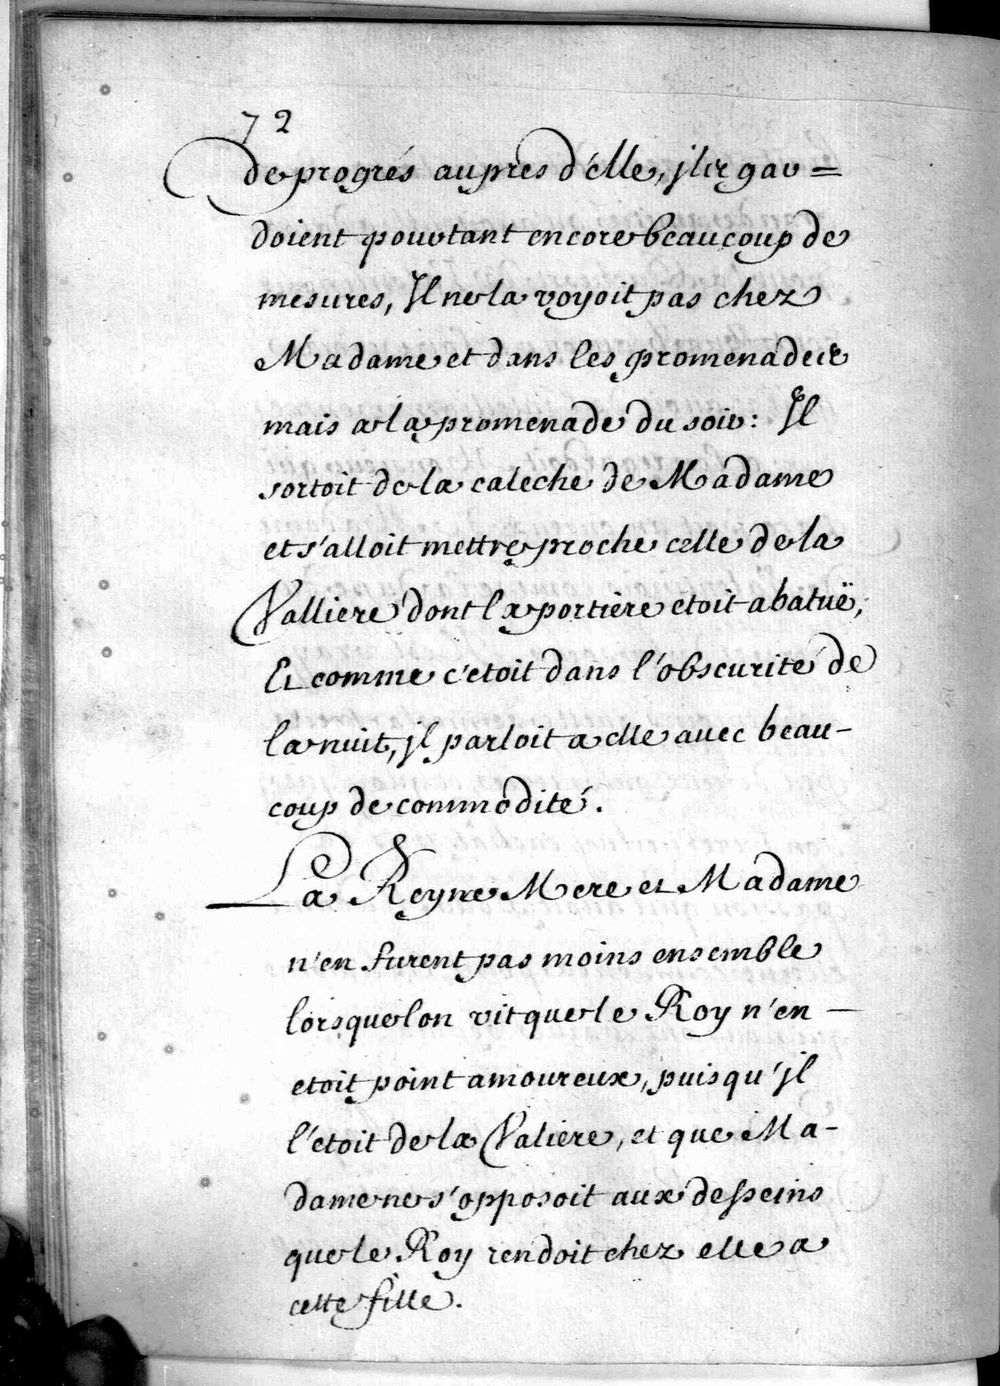 72
de progrés aupres d'élle, jls gar=
doient pourtant encore beaucoup de
mesures, Jl ne la voyoit pas chez
Madame et dans les promenades
mais a la promenade du soir: Jl
sortoit de la caleche de Madame
et s'alloit mettre proche celle de la
Valliere dont la portiere etoit abatuë,
Et comme c'etoit dans l'obscurité de
la nuit, jl parloit a elle avec beau-
coup de commodité.
La Reyne Mere et Madame
n'en furent pas moins ensemble
lorsque lon vit que le Roy n'en —
etoit point amoureux, puisqu'jl
l'étoit de la Valiere, et que Ma-
dame ne s'opposoit aux desseins
que le Roy rendoit chez elle a
cette fille.